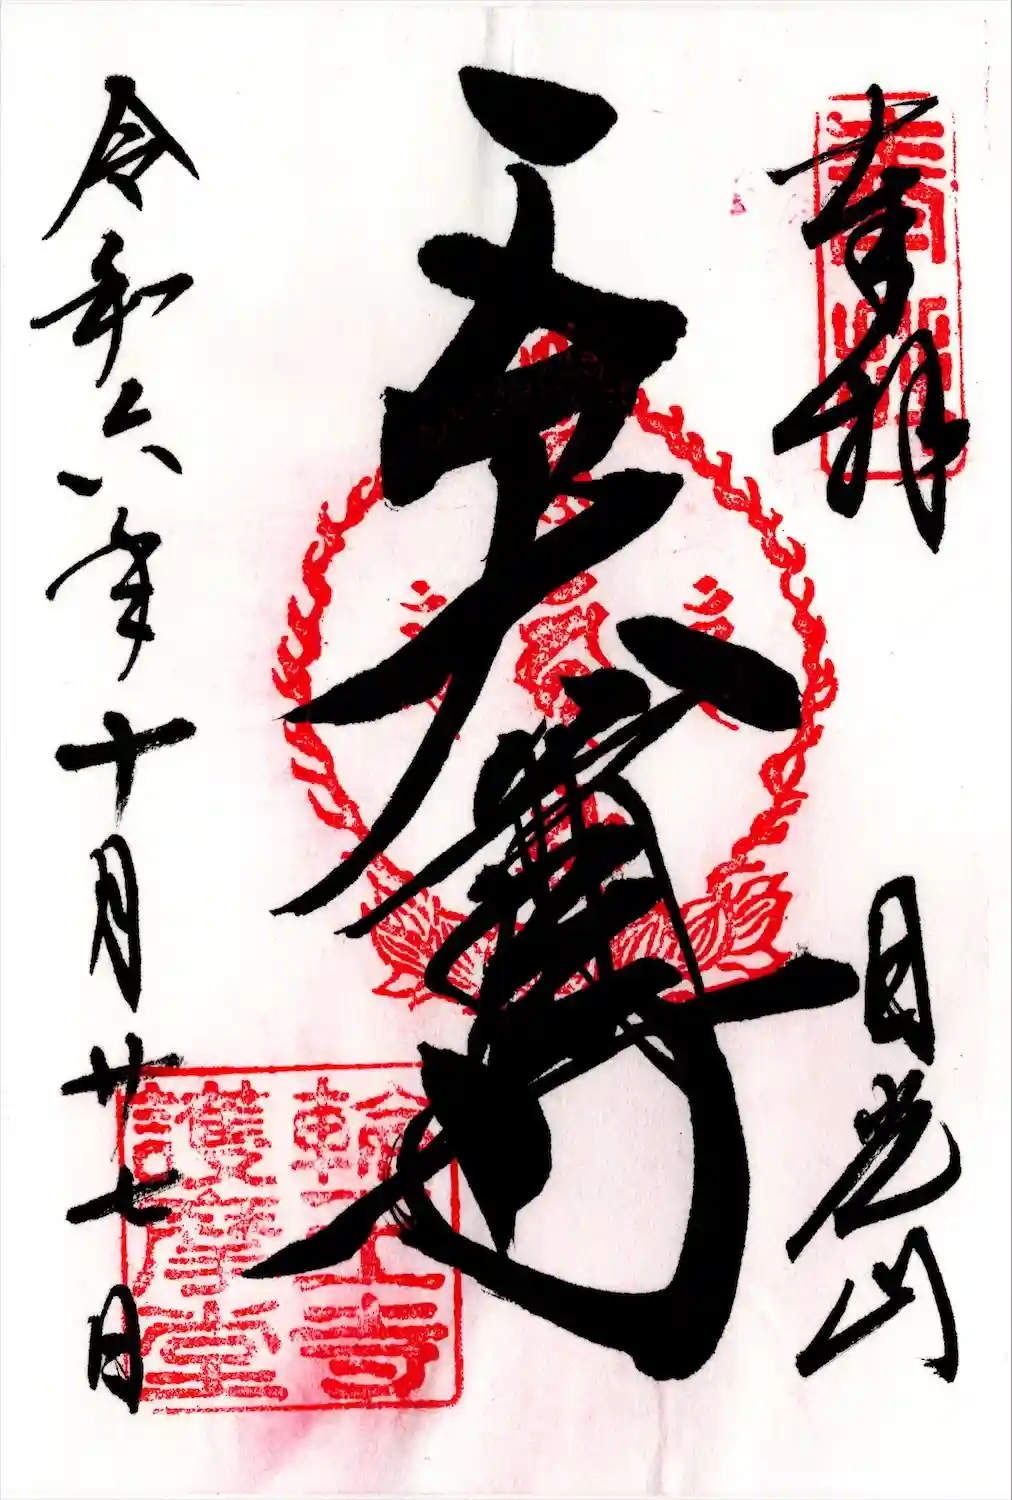 奉拝
日光山
五大尊
輪王寺
護摩堂
令和六年十月廿七日